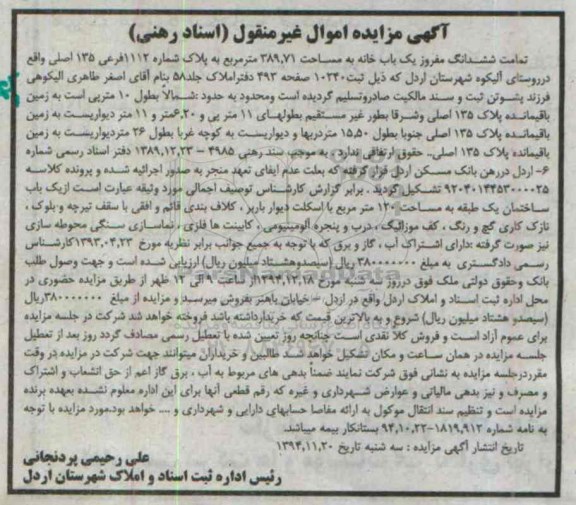 آگهی مزایده اموال غیرمنقول (اسناد رهنی)
تمامت ششدانگ مفروز یک باب خانه به مساحت ۳۸۹,۷۱ مترمربع به پلاک شماره ۱۱۱۲فرعی ۱۳۵ اصلی واقع
درروستای آلیکوه شهرستان اردل که ذیل ثبت۱۰۲۳۰ صفحه ۴۹۳ دفتراملاک جلد۵۸ بنام آقای اصغر طاهری الیکوهی
فرزند پشوتن ثبت و سند مالکیت صادروتسلیم گردیده است ومحدود به حدود :شمالاً بطول ۱۰ متریی است به زمین
باقیمانده پلاک ۱۳۵ اصلی وشرقا بطور غیر مستقیم بطولهای ۱۱ متر پی و ۶,۲۰متر و ۱۱ متر دیواریست به زمین
باقیمانده پلاک ۱۳۵ اصلی جنوبا بطول ۱۵,۵۰ متردربها و دیواریست به کوچه غربا بطول ۲۶ متردیواریست به زمین
باقیمانده پلاک ۱۳۵ اصلی.. حقوق ارتفاقی ندارد. به موجب سند رهنی ۴۹۸۵ – ۱۳۸۹,۱۲,۲۳ دفتر اسناد رسمی شماره
۶- اردل دررهن بانک مسکن اردل قرار گرفته که بعلت عدم ایفای تعهد منجر به صدور اجرائیه شده و پرونده کلاسه
۹۲۰۴۰۱۴۴۵۳۰۰۰۰۲۵ تشکیل گردید . برابر گزارش کارشناس توصیف اجمالی مورد وثیقه عبارت است ازیک باب
ساختمان یک طبقه به مساحت ۱۲۰ متر مربع با اسکلت دیوار باربر ، کلاف بندی قائم و افقی با سقف تیرچه و بلوک ،
نازک کاری گچ و رنگ ، کف موزائیک، درب و پنجره آلومینیومی ، کابینت ها فلزی ، نماسازی سنگی محوطه سازی
نیز صورت گرفته :دارای اشتراک آب ، گاز و برق که با توجه به جمیع جوانب برابر نظریه مورخ ۱۳۹۳,۰۴,۲۳کارشناس
رسمی دادگستری به مبلغ ۳۸۰۰۰۰۰۰۰ ریال (سیصدوهشتاد میلیون ریال) ارزیابی شده است و جهت وصول طلب
بانک وحقوق دولتی ملک فوق درروز سه شنبه مورخ ۱۳۹۴,۱۲,۱۸از ساعت ۹ الی ۱۲ ظهر از طریق مزایده حضوری در
محل اداره ثبت اسناد و املاک اردل واقع در اردل – خیابان باهنر بفروش میرسد و مزایده از مبلغ ۳۸۰۰۰۰۰۰۰ریال
(سیصدو هشتاد میلیون ریال) شروع و به بالاترین قیمت که خریدارداشته باشد فروخته خواهد شد شرکت در جلسه مزایده
برای عموم آزاد است و فروش کلا نقدی است چنانچه روز تعیین شده با تعطیل رسمی مصادف گردد روز بعد از تعطیل
جلسه مزایده در همان ساعت و مکان تشکیل خواهد شد طالبین و خریداران میتوانند جهت شرکت در مزایده در وقت
مقرردرجلسه مزایده به نشانی فوق شرکت نمایند ضمناً بدهی های مربوط به آب ، برق گاز اعم از حق انشعاب و اشتراک
و مصرف و نیز بدهی مالیاتی و عوارض شهرداری و غیره که رقم قطعی آنها برای این اداره معلوم نشده بعهده برنده
مزایده است و تنظیم سند انتقال موکول به ارائه مفاصا حسابهای دارایی و شهرداری و .... خواهد بود.مورد مزایده با توجه
به نامه شماره ۱۸۱۹,۹۱۲-۹۴,۱۰,۲۲ بستانکار بیمه میباشد.
تاریخ انتشار آگهی مزایده : سه شنبه تاریخ ۱۳۹۴,۱۱,۲۰
علی رحیمی پردنجانی
رئیس اداره ثبت اسناد و املاک شهرستان اردل